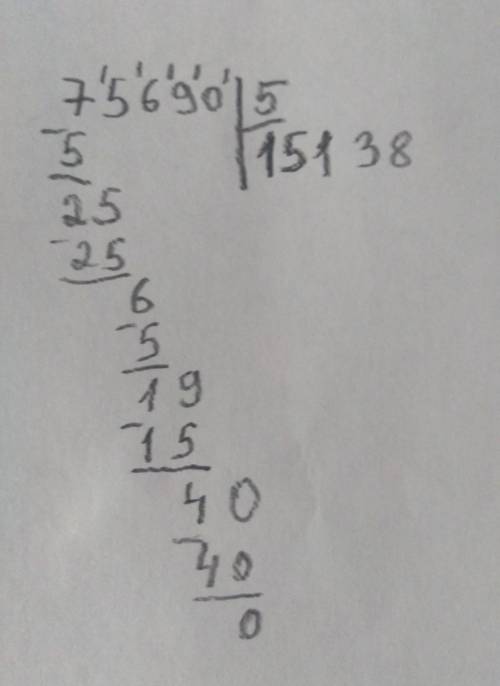 75690 5
-5 15138
25
-25
6
-5
19
-15
40
-40
0